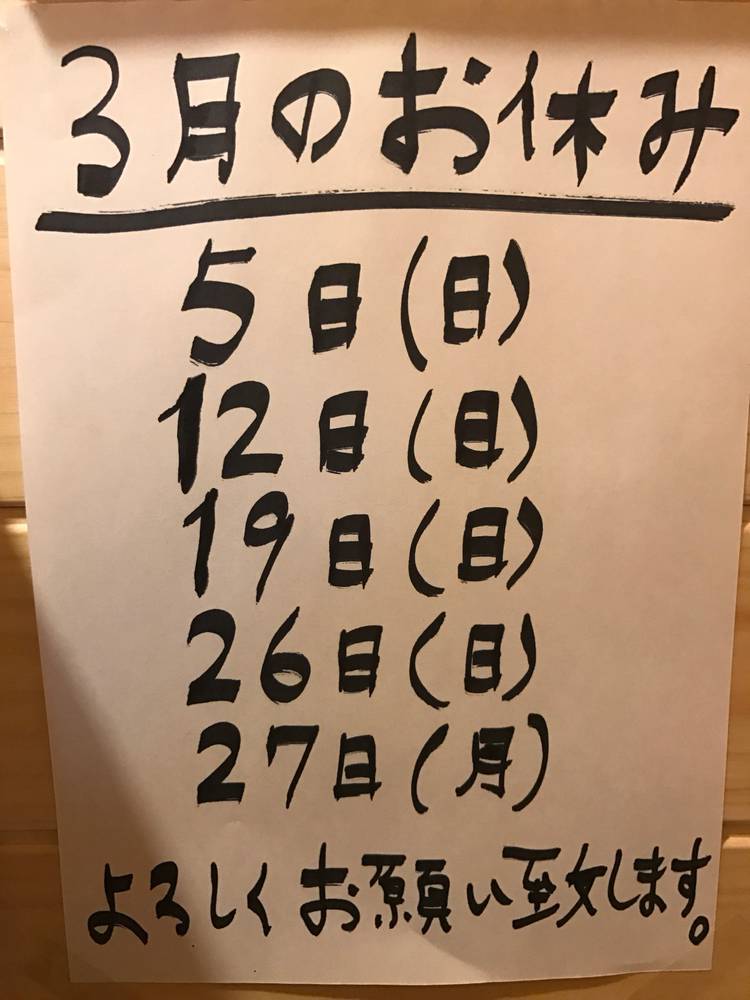 3月のお休み
5日(日)
12日(日)
19日(日)
26日(日)
27日(月)
よろしくお願い致します。